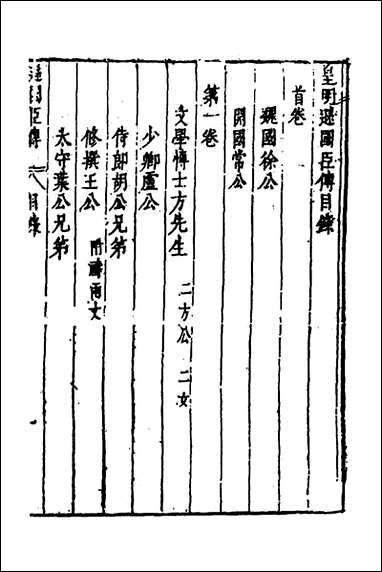 皇明遜國臣傳目錄
首卷
魏國徐公
開國常公
第一卷
文學博士方先生 二方公 二女
少卿盧公
侍郎胡公兄弟
修撰王公 附轉雨丈
太守葉公兄弟
遜國臣傳 目錄